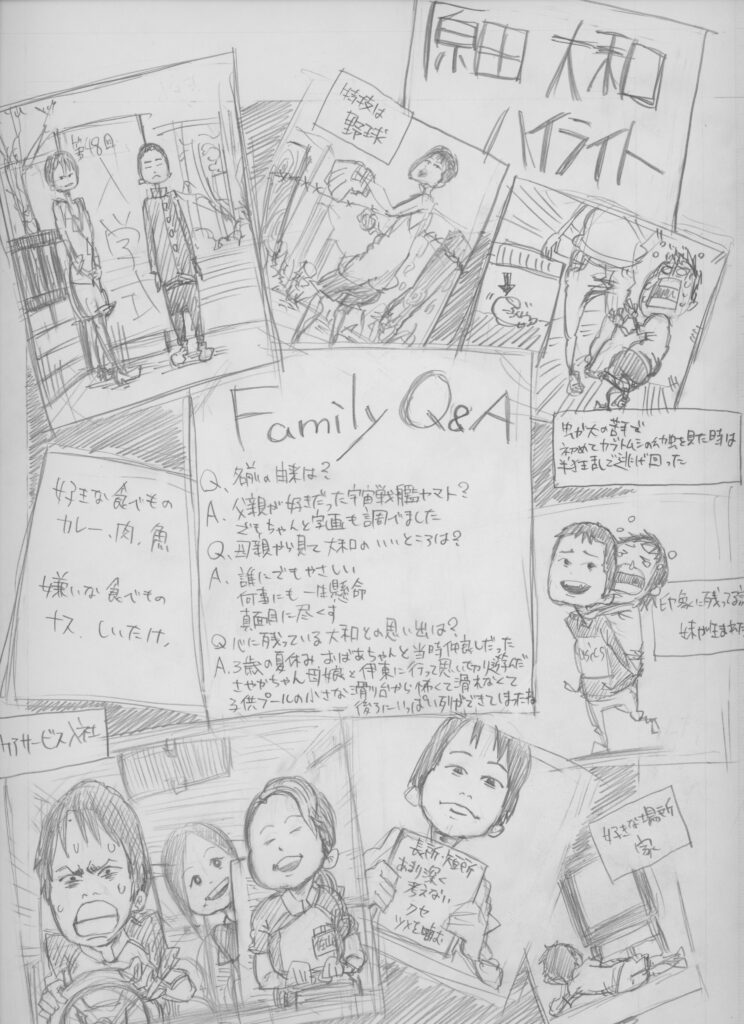 原田 大和
ハイライト
特技は
野球
第48回
入学式
虫が大の苦手で
初めてカブトムシの幼虫を見た時は
半狂乱で逃げ回った
Family Q&A
Q、名前の由来は?
A、父親が好きだった宇宙戦艦ヤマト?
でもちゃんと字画も調べました
Q、母親から見て大和のいいところは?
A、誰にでもやさしい
何事にも一生懸命
真面目に尽くす
Q 心に残っている大和との思い出は?
A、3歳の夏休み おばあちゃんと当時仲良しだった
さやかちゃん母娘と伊東に行って思いっきり遊んだ
子供プールの小さな滑り台から怖くて滑れなくて
後ろにいっぱい列ができてましたね
好きな食べもの
カレー、肉、魚
嫌いな食べもの
ナス、しいたけ、
家に残ってる
妹が生まれた
ケアサービス入社
長所・短所
あまり深く
考えない
クセ
ツメを噛む
好きな場所
家